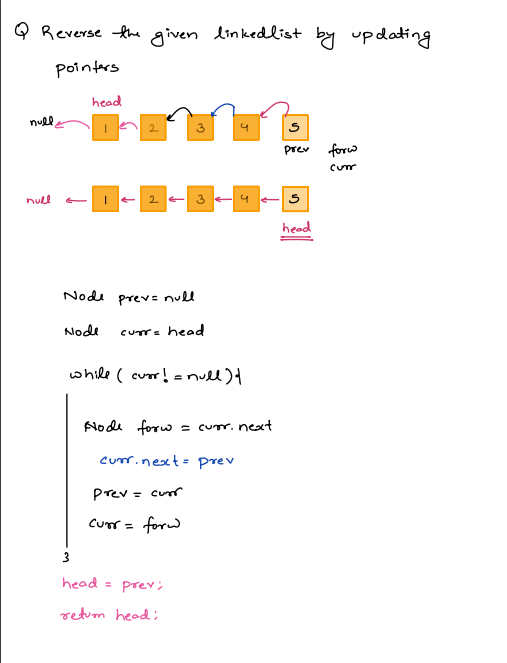 Q Reverse the given linkedlist by updating
pointers
head
null 1 2 3 4 5
prev forw
curr
null 1 2 3 4 5
head
Node prev = null
Node curr = head
while ( curr! = null ) {
Node forw = curr.next
curr.next = prev
prev = curr
curr = forw
}
head = prev;
return head;